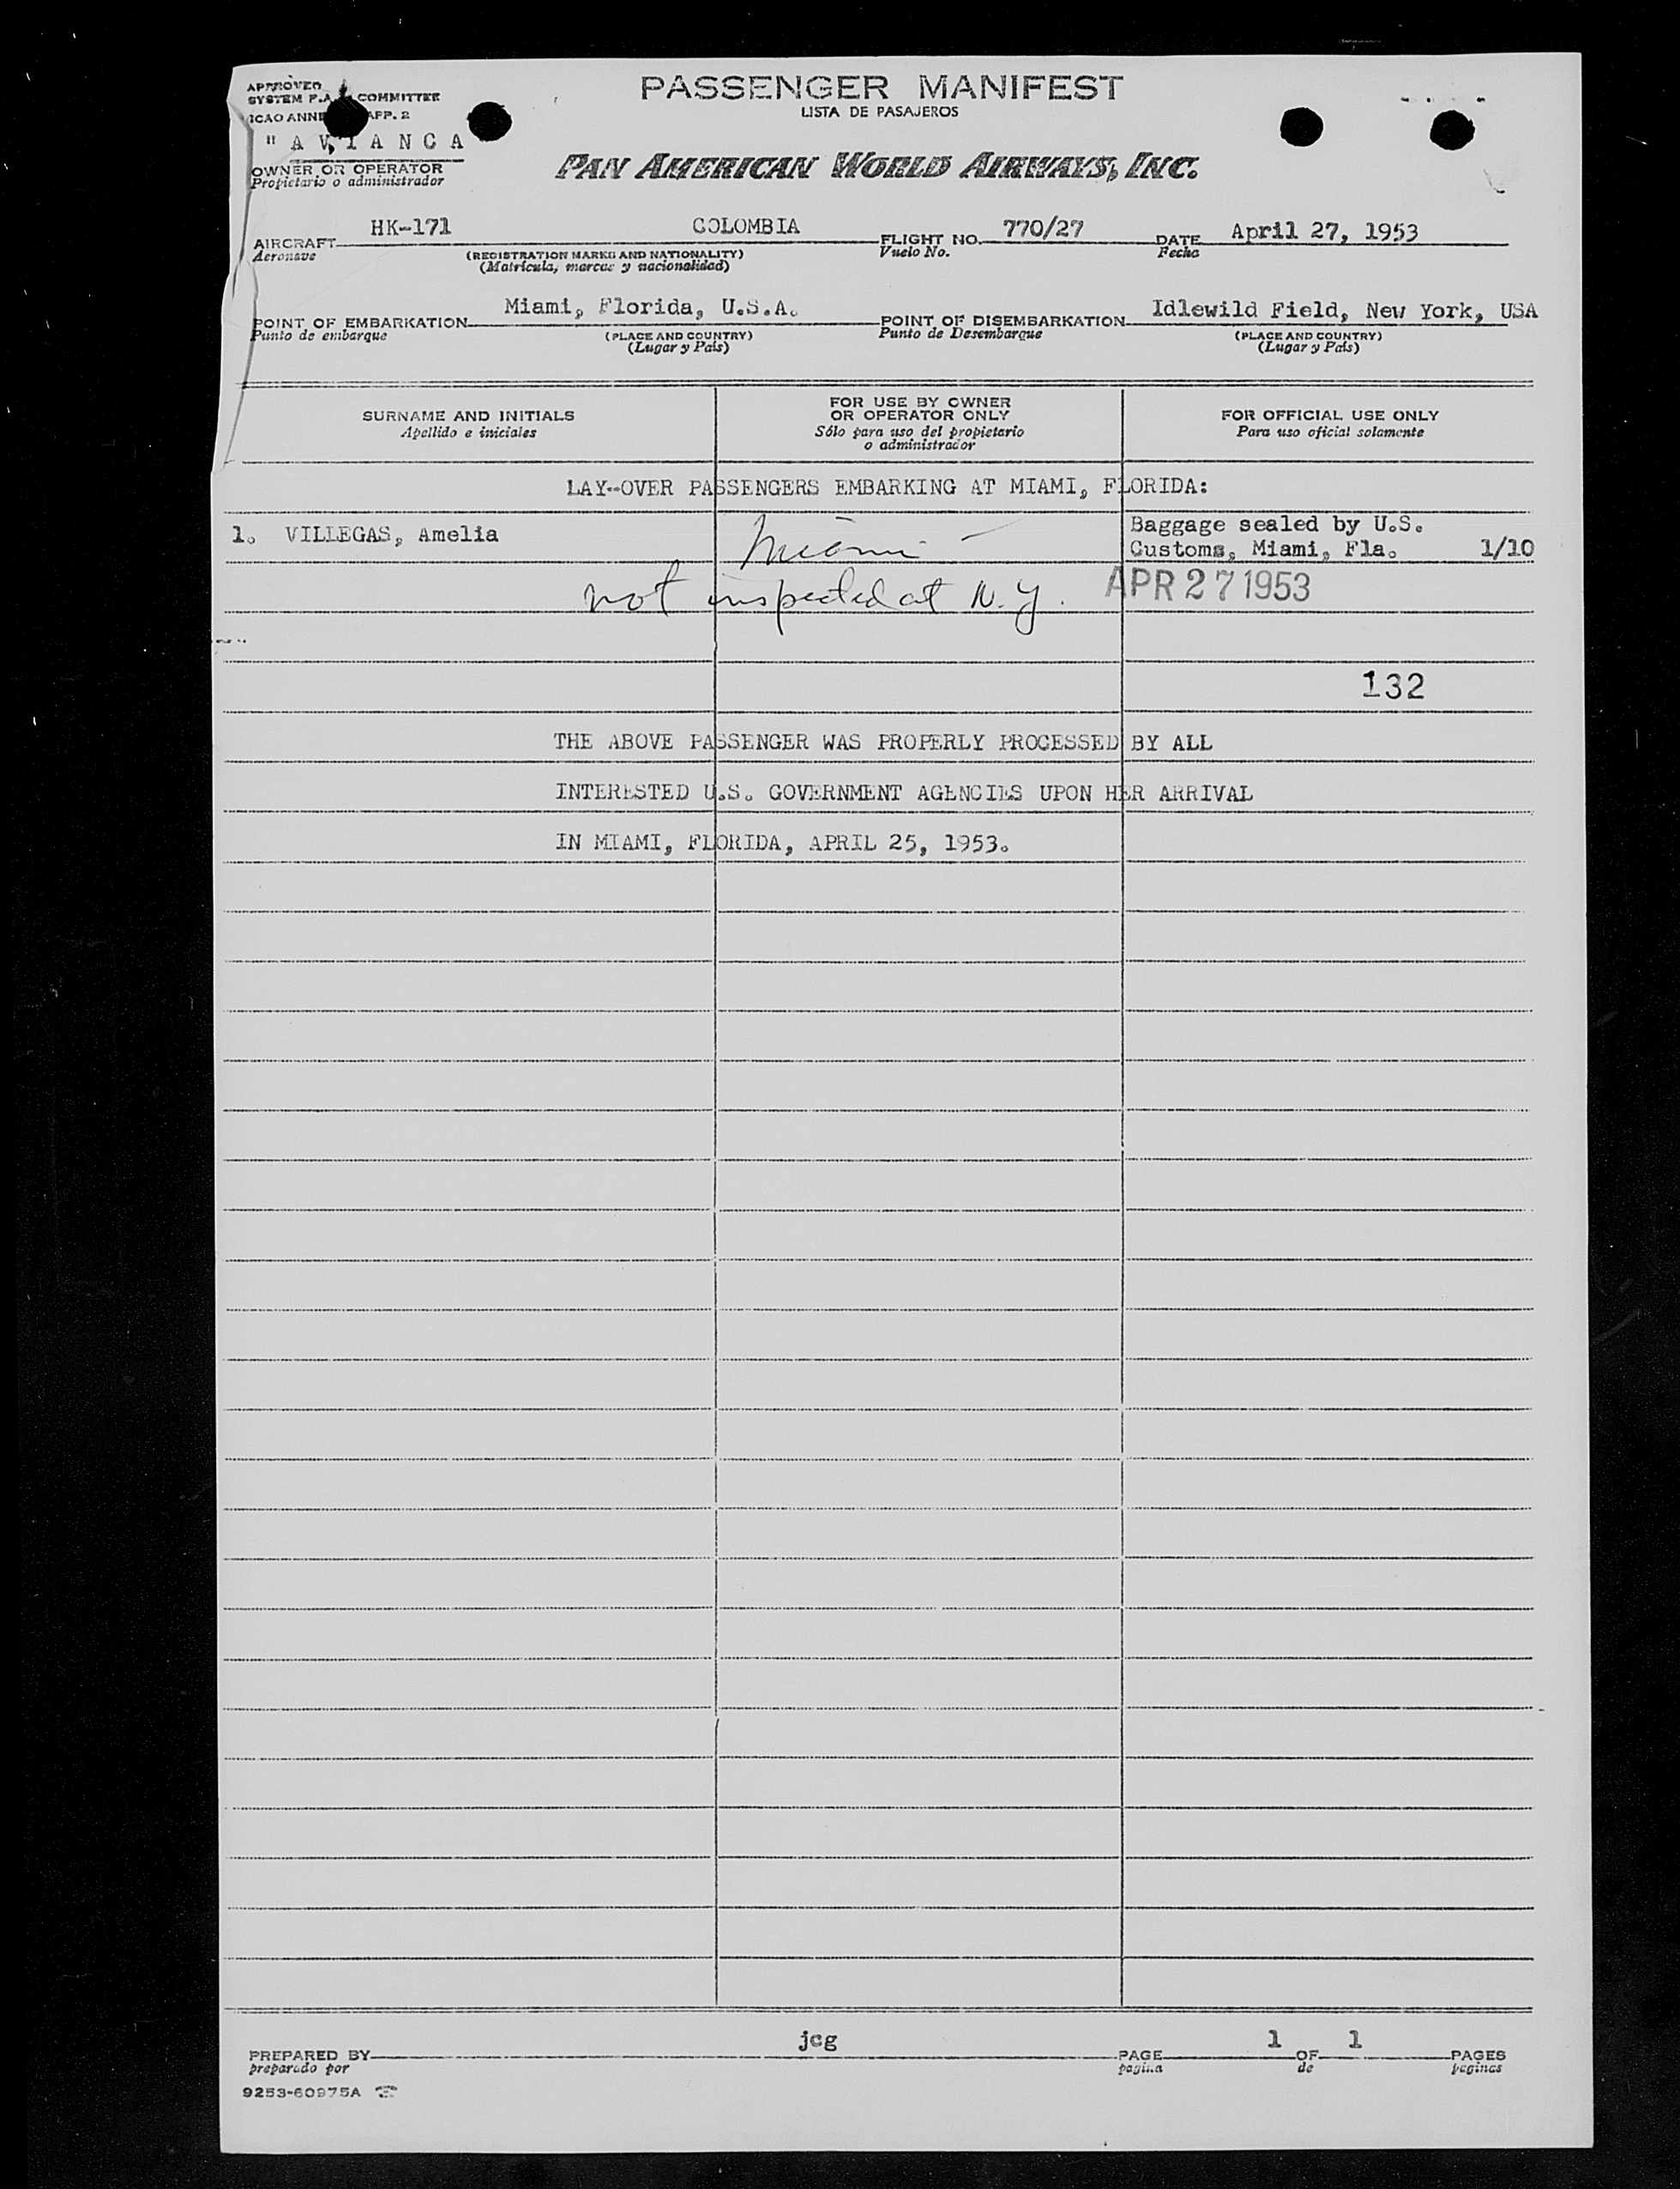 APPROVED
SYSTEM F.A. COMMITTEE
ICAO ANNE APP. 2
PASSENGER MANIFEST
LISTA DE PASAJEROS
"AVIANCA
OWNER OR OPERATOR
Propietario o administrador
PAN AMERICAN WORLD AIRWAYS, INC.
AIRCRAFT HK-171 COLOMBIA FLIGHT NO. 770/27 DATE April 27, 1953
Aeronave (REGISTRATION MARKS AND NATIONALITY) Vuelo No. Fecha
(Matrícula, marcas y nacionalidad)
POINT OF EMBARKATION Miami, Florida, U.S.A. POINT OF DISEMBARKATION Idlewild Field, New York, USA
Punto de embarque (PLACE AND COUNTRY) Punto de Desembarque (PLACE AND COUNTRY)
(Lugar y País) (Lugar y País)
SURNAME AND INITIALS
Apellido e iniciales
FOR USE BY OWNER
OR OPERATOR ONLY
Sólo para uso del propietario
o administrador
FOR OFFICIAL USE ONLY
Para uso oficial solamente
LAY-OVER PASSENGERS EMBARKING AT MIAMI, FLORIDA:
1. VILLEGAS, Amelia Miami - Baggage sealed by U.S.
Customs, Miami, Fla. 1/10
not inspected at N.Y. APR 27 1953
132
THE ABOVE PASSENGER WAS PROPERLY PROCESSED BY ALL
INTERESTED U.S. GOVERNMENT AGENCIES UPON HER ARRIVAL
IN MIAMI, FLORIDA, APRIL 25, 1953.
PREPARED BY jcg PAGE 1 OF 1 PAGES
preparado por pagina de paginas
9253-60975A